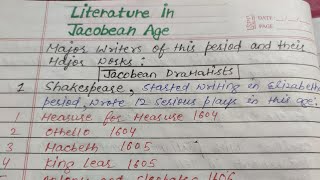 Literature in
Jacobean Age
DATE
PAGE
Major Writers of this period and their
Major Works :
Jacobean Dramatists
1 Shakespeare, started writing in Elizabeth
period, wrote 12 serious plays in this age.
1 Measure for Measure 1604
2 Othello 1604
3 Macbeth 1605
4 King Lear 1605
Antony and Cleopatra 1606